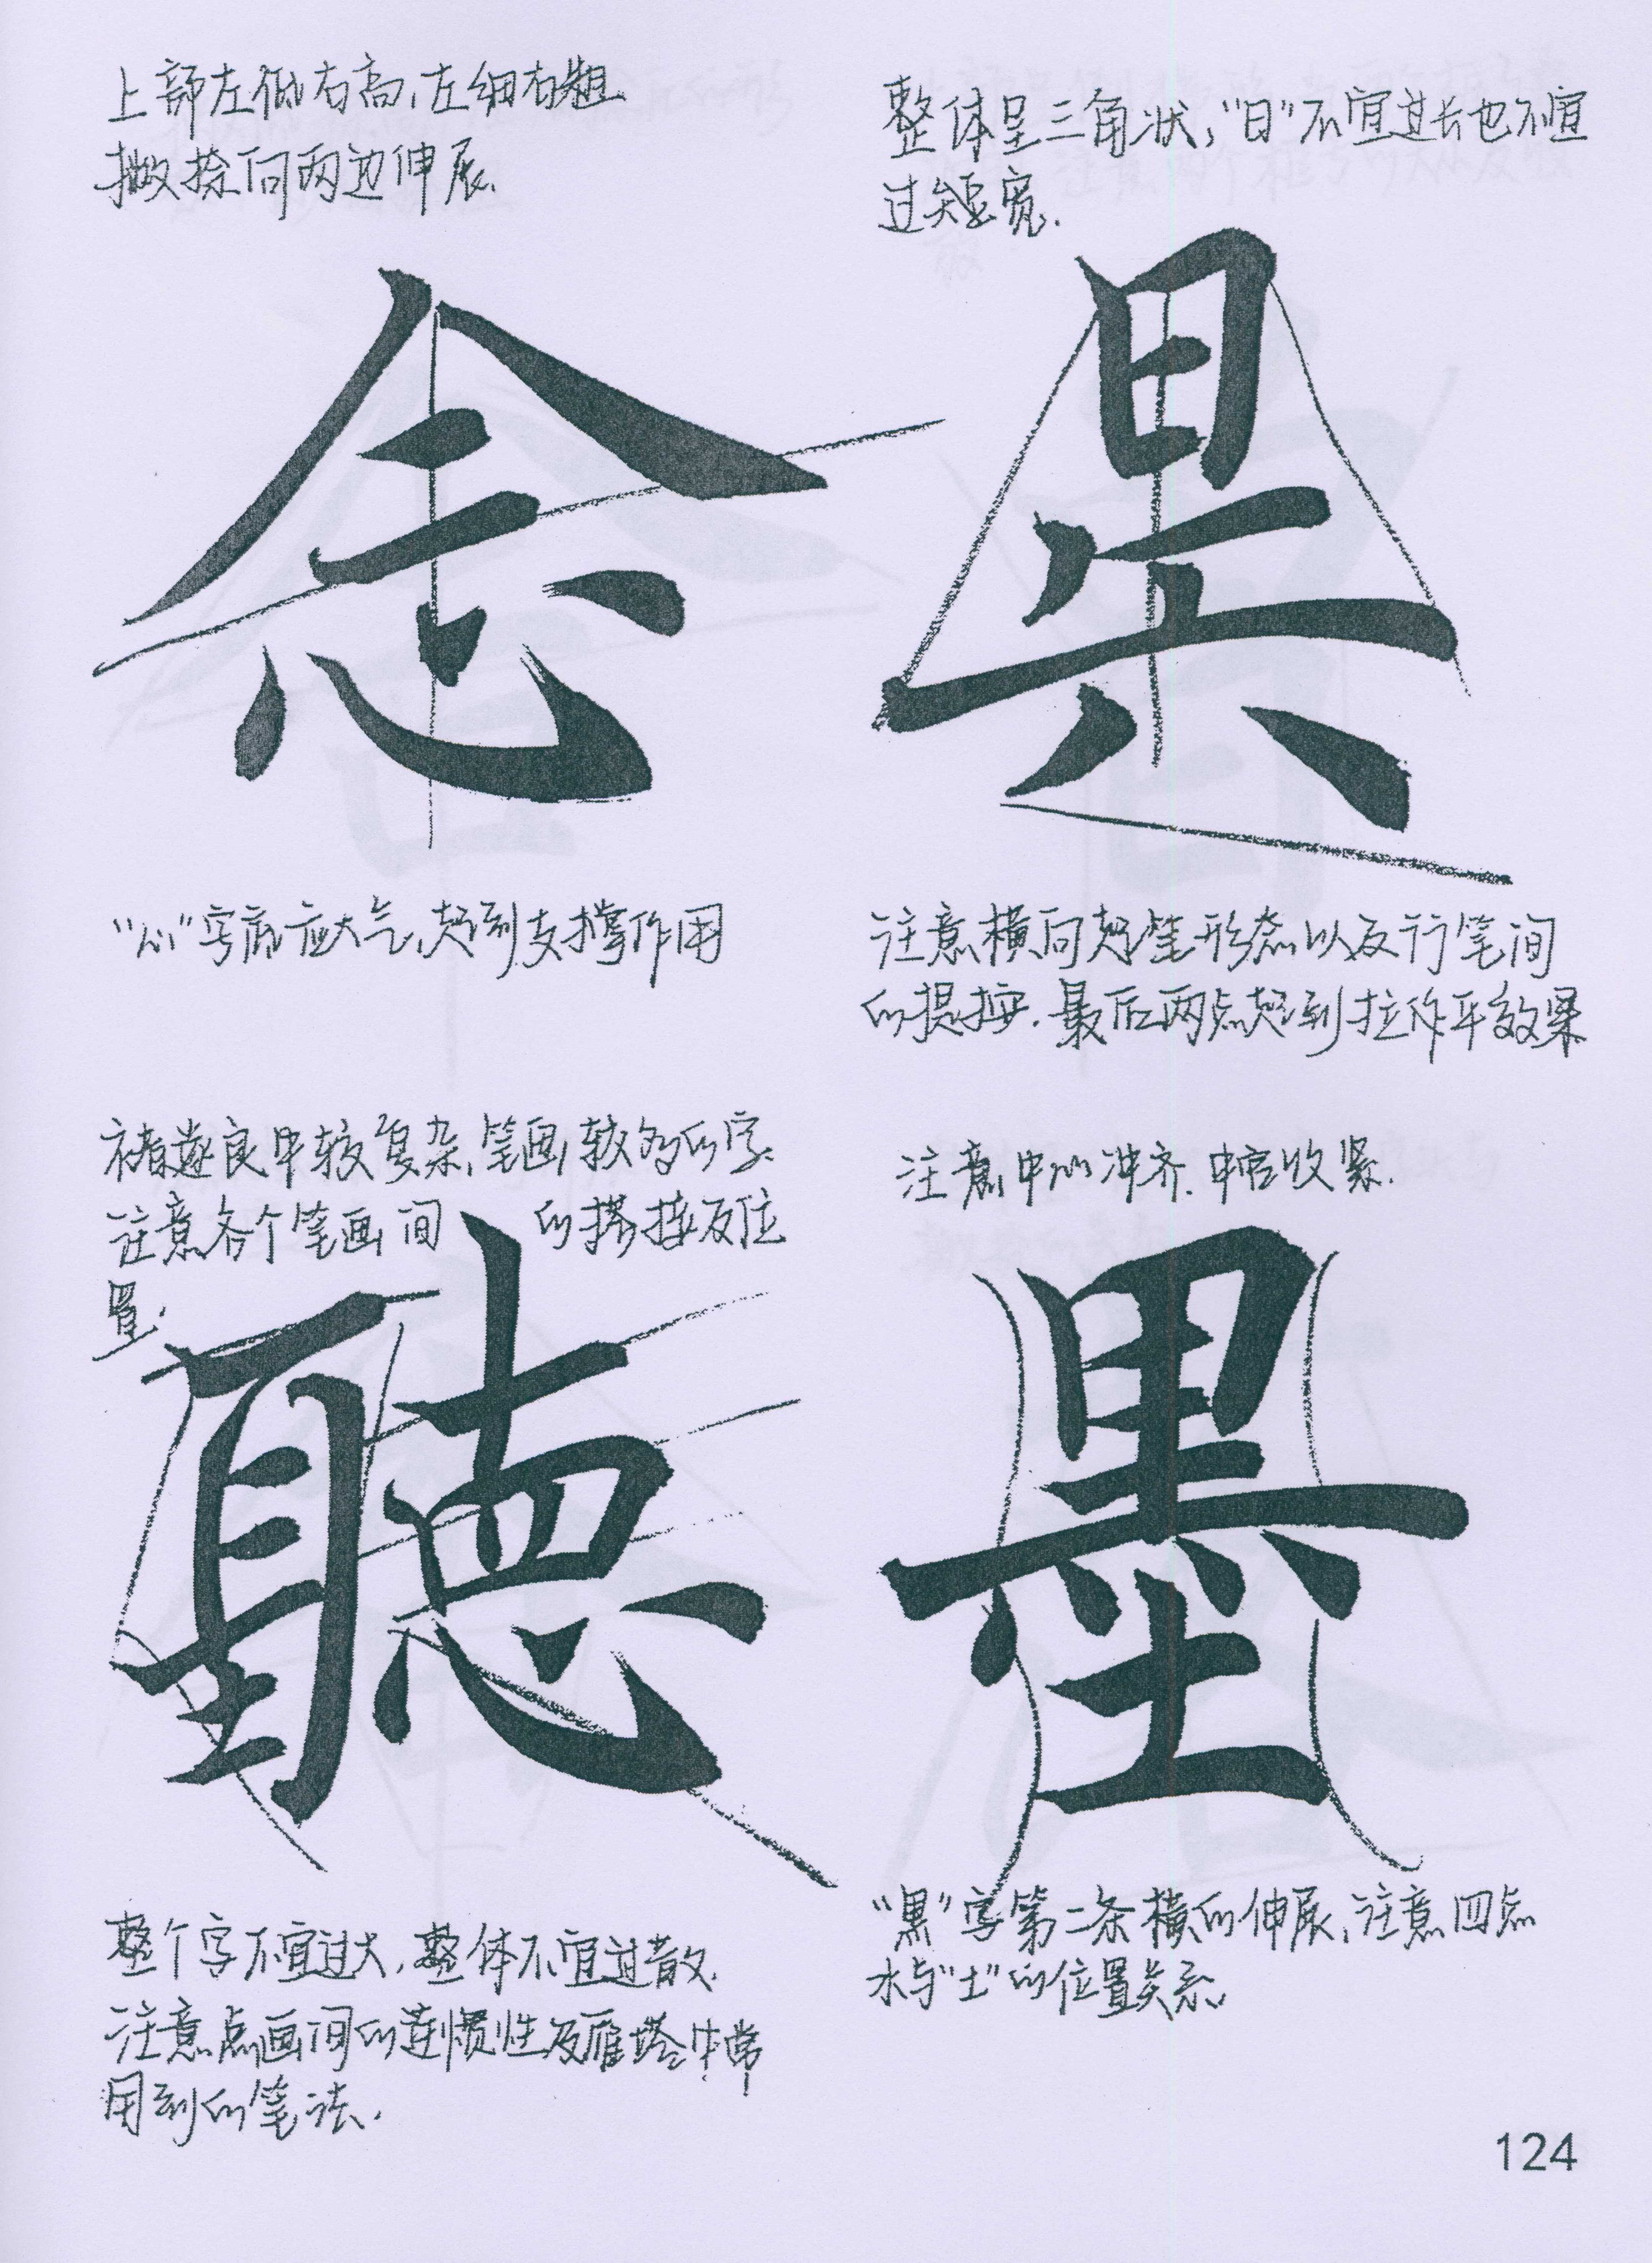 上部左低右高，左细右粗
撇捺向两边伸展.
念
"心"字底应大气，起到支撑作用
整体呈三角状，"日"不宜过长也不宜
过短宽.
注意横向起笔形态以及行笔间
的提按.最后两点起到拉作平效果
褚遂良中较复杂，笔画较多的字.
注意各个笔画间的搭接及位
置.
聽
整个字不宜过大，整体不宜过散.
注意点画间的连惯性及雁塔中常
用到的笔法.
注意中心冲齐.中宫收紧.
墨
"黑"字第二条横的伸展，注意四点
水与"土"的位置关系.
124